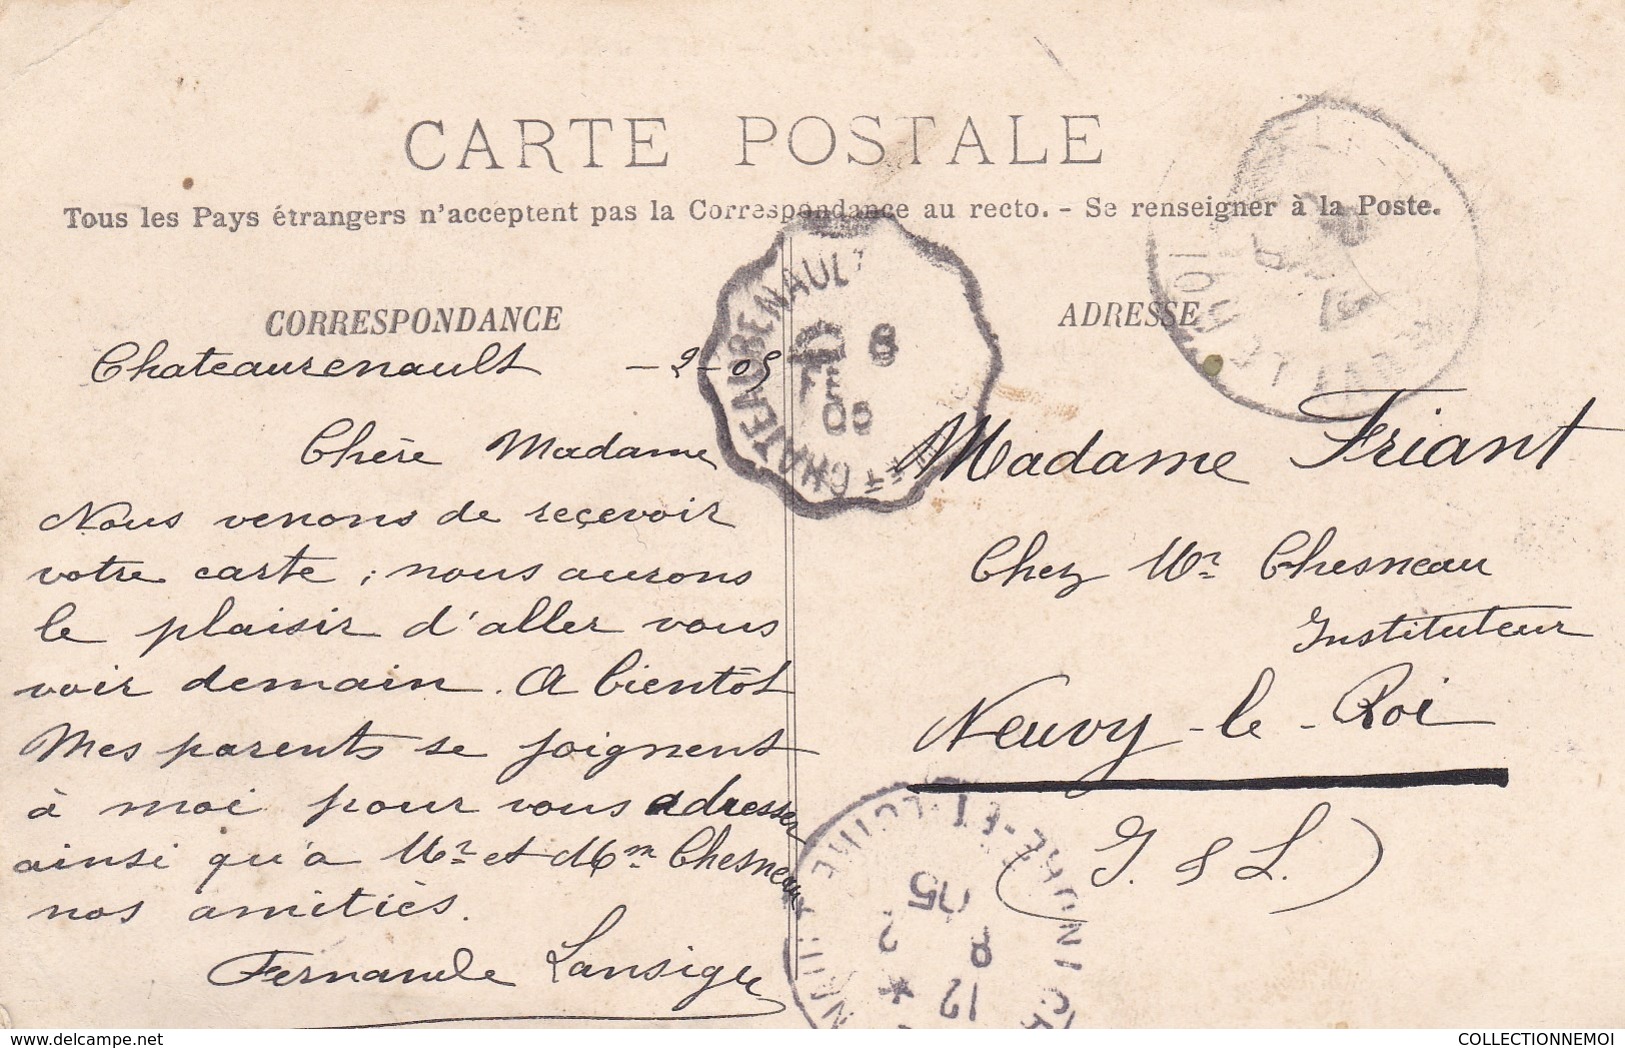 CARTE POSTALE
Tous les Pays étrangers n'acceptent pas la Correspondance au recto. - Se renseigner à la Poste.
CORRESPONDANCE
Chateaurenault - 2 - 05
Chère Madame
Nous venons de reçevoir
votre carte ; nous aurons
le plaisir d'aller vous
voir demain. A bientôt
Mes parents se joignent
à moi pour vous adresser
ainsi qu'a Mr et Mm Chesneau
nos amitiés.
Fernande Lansigu
ADRESSE
Madame Friant
Chez Mr Chesneau
Instituteur
Neuvy-le-Roi
(I. & L.)
CHATEAURENAULT
8
05
INDRE-ET-LOIRE
12
8
2
05
COLLECTIONNEMOI